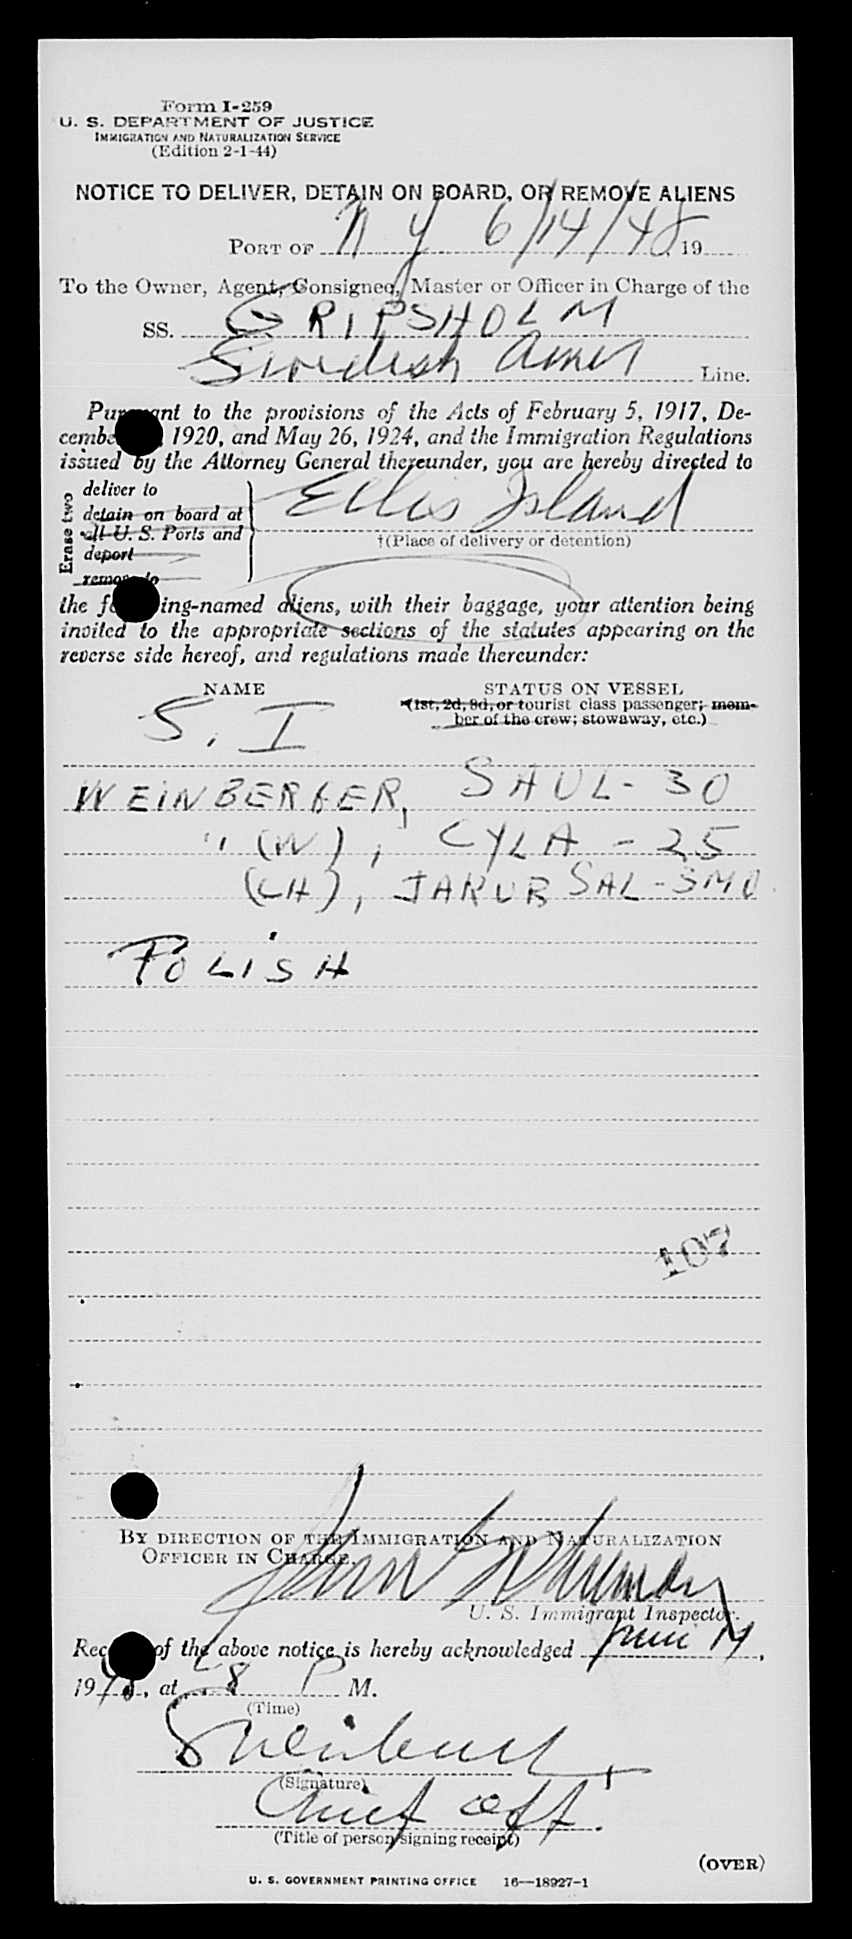 Form I-259
U. S. DEPARTMENT OF JUSTICE
IMMIGRATION AND NATURALIZATION SERVICE
(Edition 2-1-44)
NOTICE TO DELIVER, DETAIN ON BOARD, OR REMOVE ALIENS
PORT OF N Y 6/14/48, 19
To the Owner, Agent, Consignee, Master or Officer in Charge of the
SS. GRIPSHOLM
Swedish Amer Line.
Pursuant to the provisions of the Acts of February 5, 1917, De-
cembe 1920, and May 26, 1924, and the Immigration Regulations
issued by the Attorney General thereunder, you are hereby directed to
Erase two
deliver to
detain on board at
all U. S. Ports and
deport
remove to
Ellis Island
†(Place of delivery or detention)
the f ing-named aliens, with their baggage, your attention being
invited to the appropriate sections of the statutes appearing on the
reverse side hereof, and regulations made thereunder:
NAME STATUS ON VESSEL
*(1st, 2d, 3d, or tourist class passenger; mem-
ber of the crew; stowaway, etc.)
S. I
WEINBERGER, SAUL - 30
" (W), CYLA - 25
(CH), JAKUB SAL - 3 MO
POLISH
107
BY DIRECTION OF THE IMMIGRATION AND NATURALIZATION
OFFICER IN CHARGE.
John
U. S. Immigrant Inspector.
Rec of the above notice is hereby acknowledged June 14,
1948, at 8 P M.
(Time)
(Signature)
Chief Off.
(Title of person signing receipt)
(OVER)
U. S. GOVERNMENT PRINTING OFFICE 16—18927-1